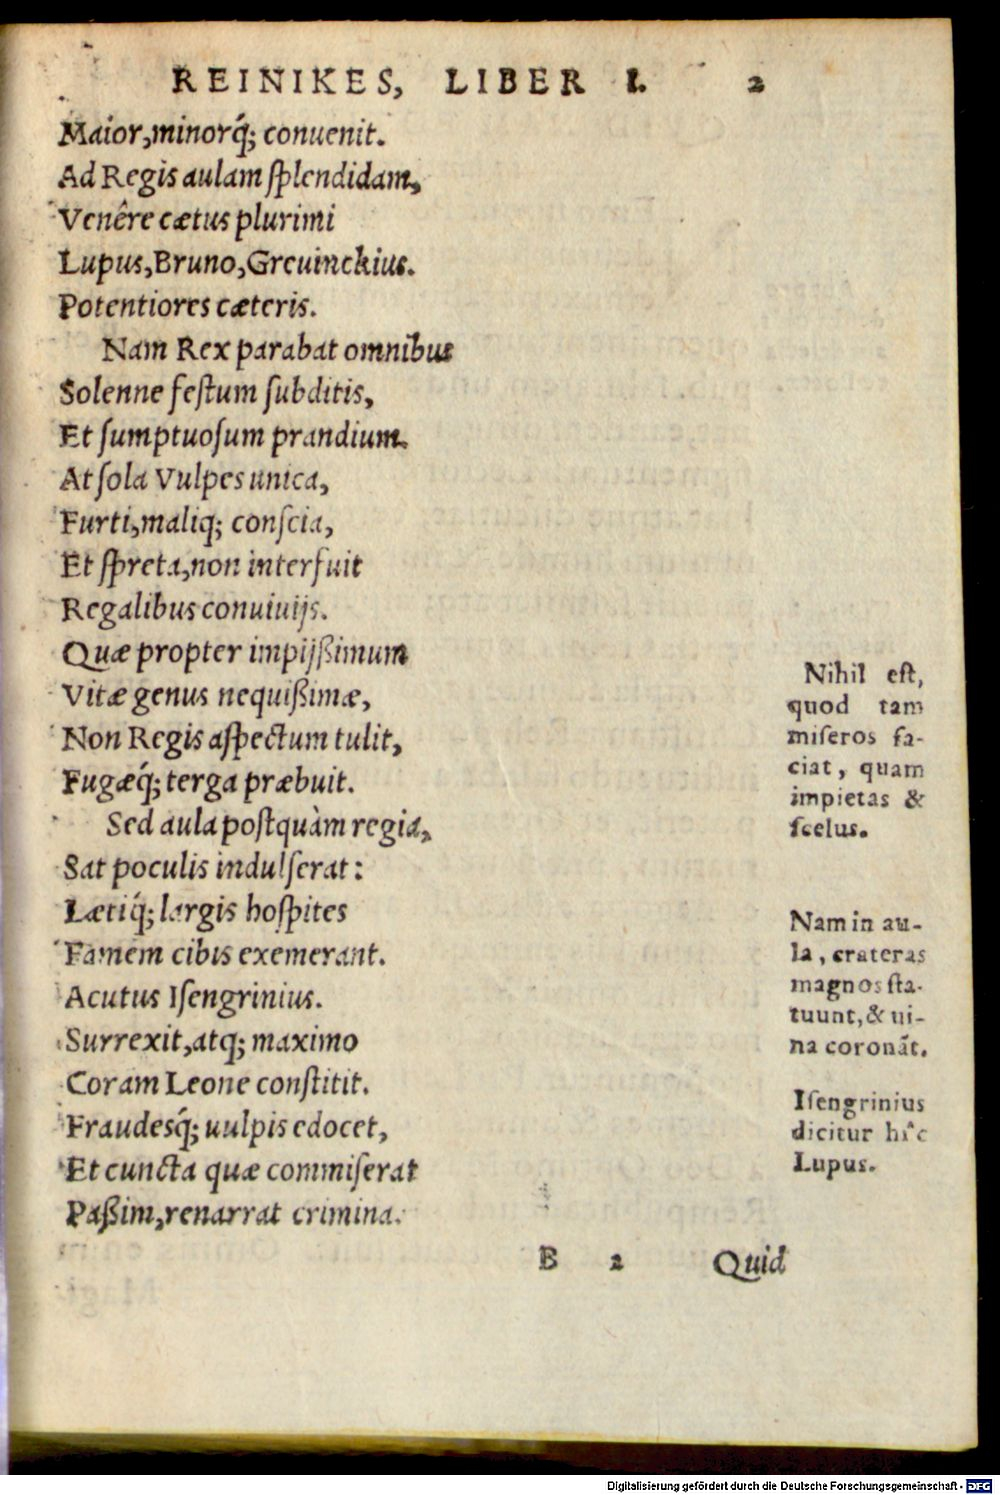 REINIKES, LIBER I. 2
Maior, minorq́; conuenit.
Ad Regis aulam ſplendidam,
Venêre cætus plurimi
Lupus, Bruno, Greuinckius.
Potentiores cæteris.
Nam Rex parabat omnibus
Solenne feſtum ſubditis,
Et ſumptuoſum prandium.
At ſola Vulpes unica,
Furti, maliq; conſcia,
Et ſpreta, non interfuit
Regalibus conuiuijs.
Quæ propter impijßimum
Vitæ genus nequißimæ,
Non Regis aſpectum tulit,
Fugæq́; terga præbuit.
Sed aula poſtquàm regia,
Sat poculis indulſerat:
Lætiq́; largis hoſpites
Famem cibis exemerant.
Acutus Iſengrinius.
Surrexit, atq; maximo
Coram Leone conſtitit.
Fraudesq́; uulpis edocet,
Et cuncta quæ commiſerat
Paßim, renarrat crimina.
Nihil eſt,
quod tam
miſeros fa-
ciat, quam
impietas &
ſcelus.
Nam in au-
la, crateras
magnos ſta-
tuunt, & ui-
na coronãt.
Iſengrinius
dicitur hîc
Lupus.
B 2 Quid
Digitalisierung gefördert durch die Deutsche Forschungsgemeinschaft - DFG